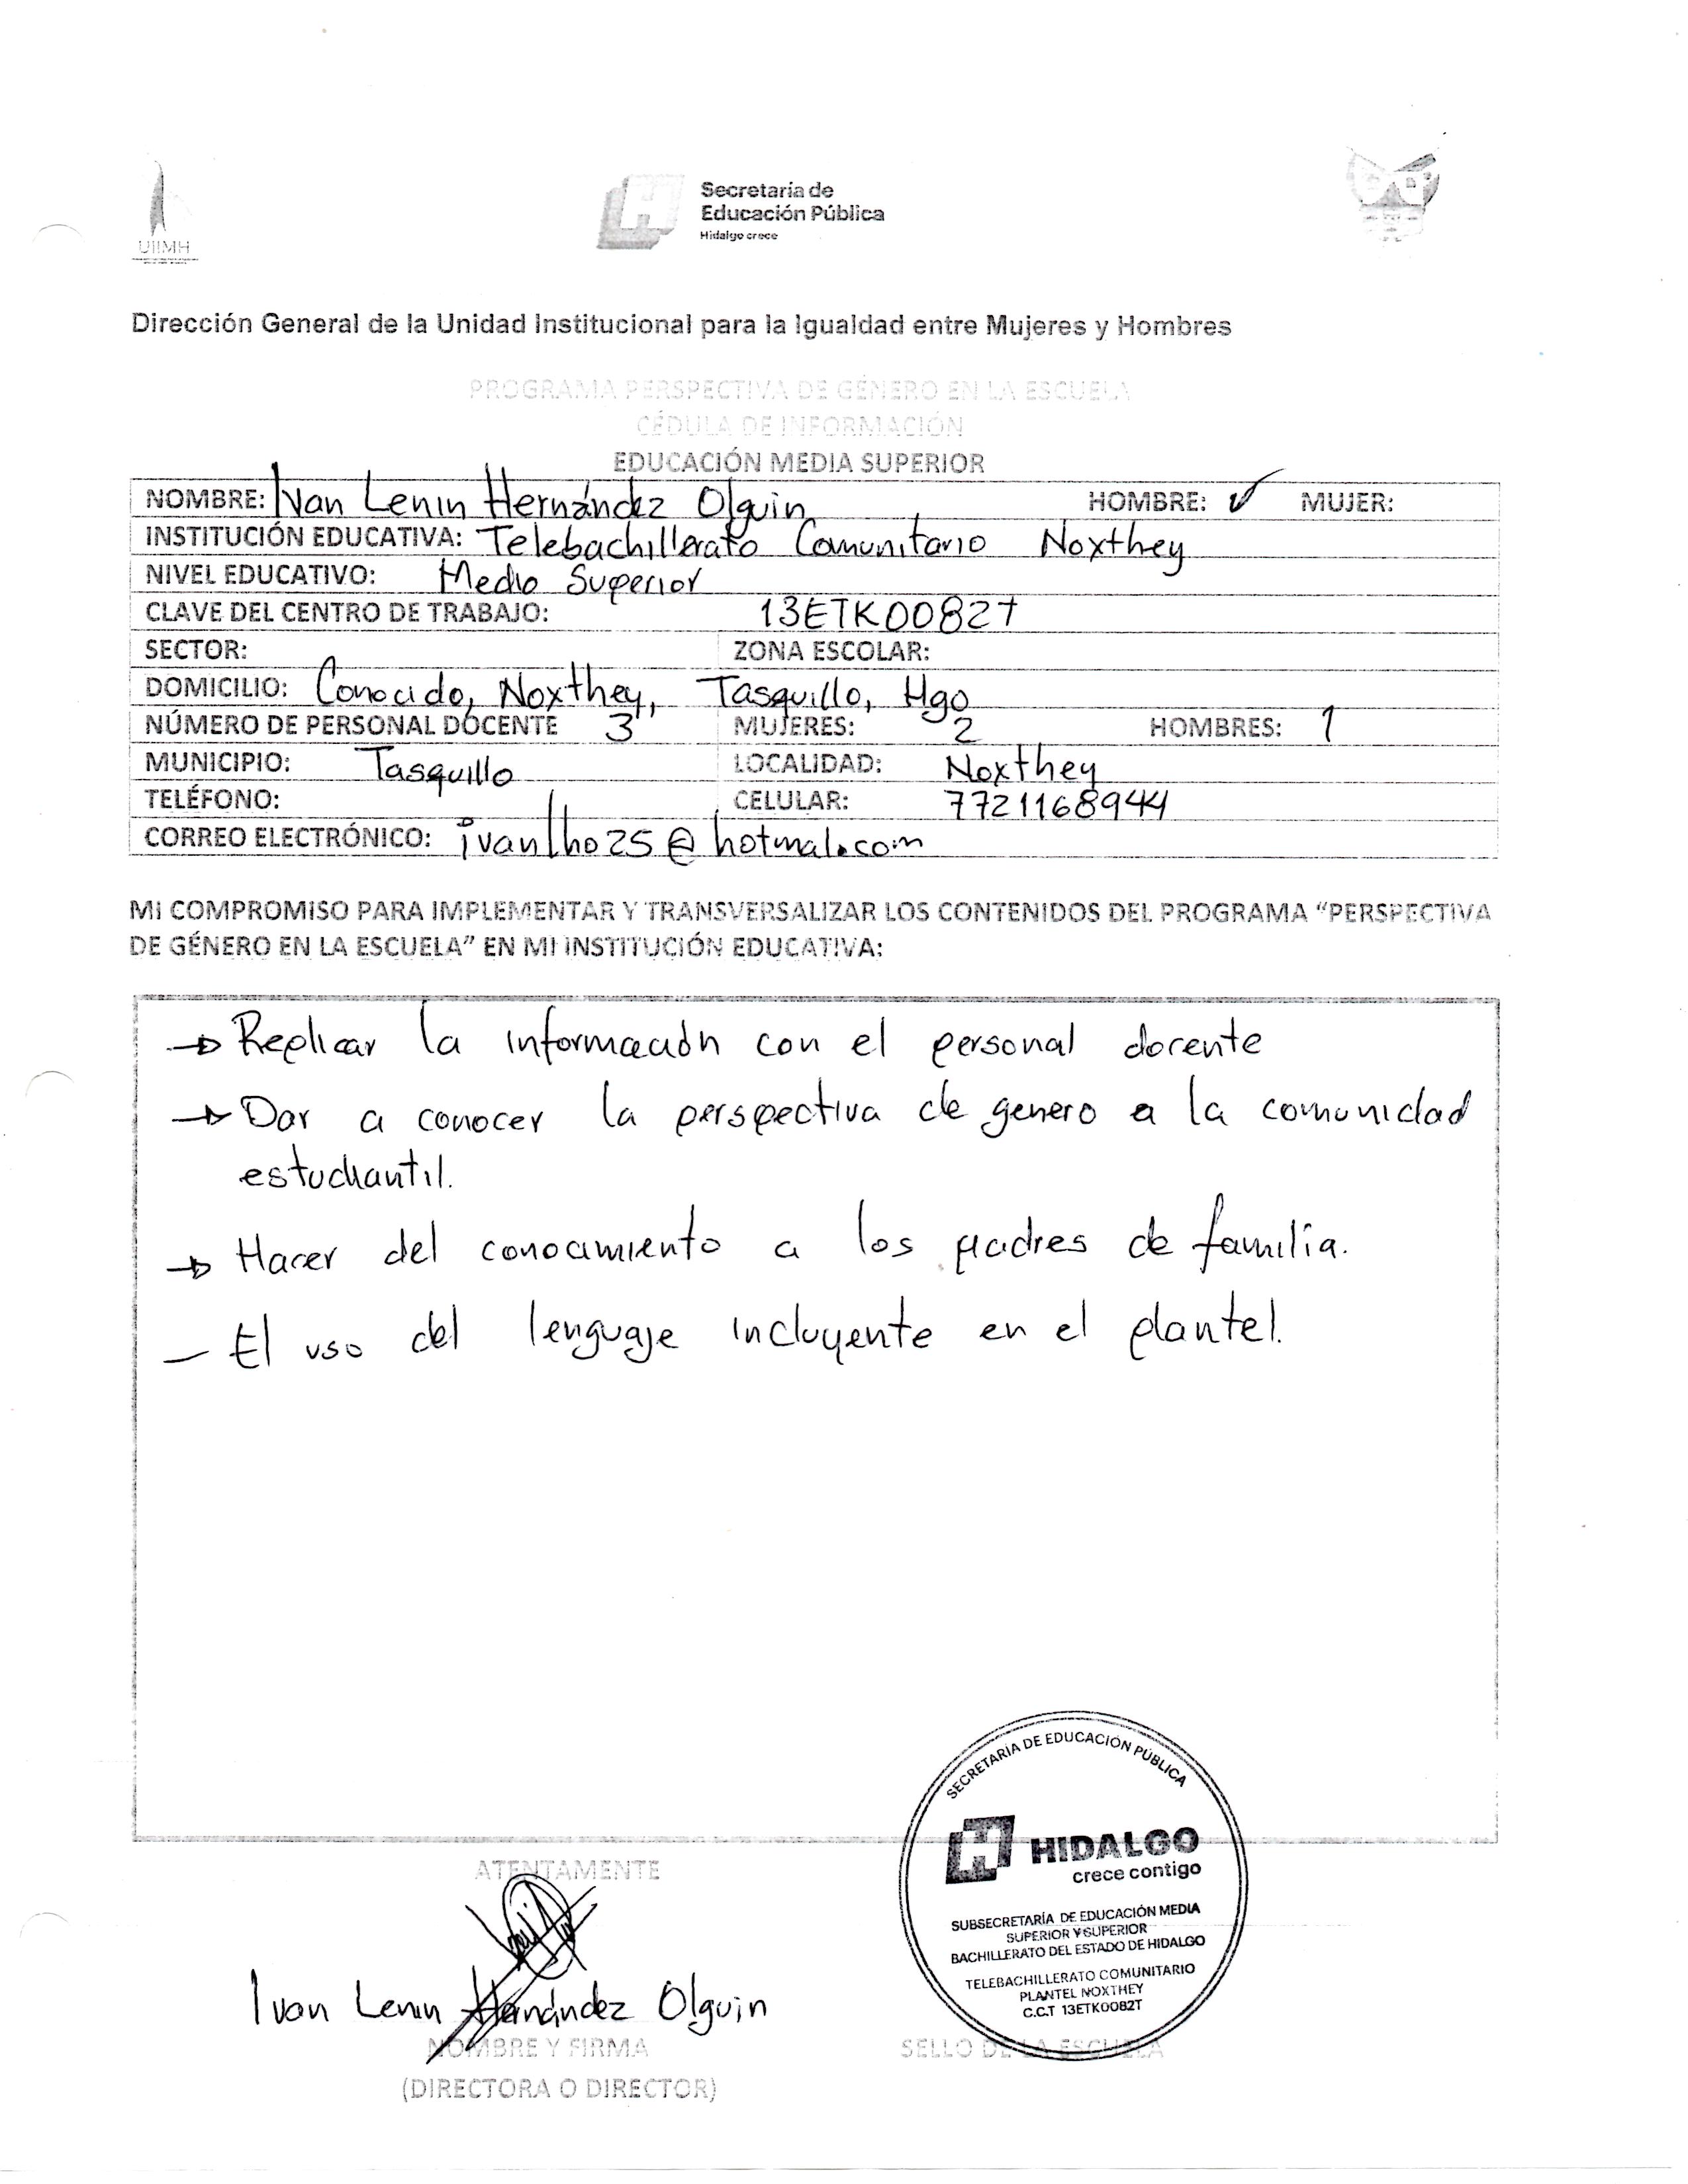 UIIMH
Secretaría de
Educación Pública
Hidalgo crece
Dirección General de la Unidad Institucional para la Igualdad entre Mujeres y Hombres
PROGRAMA PERSPECTIVA DE GÉNERO EN LA ESCUELA
CÉDULA DE INFORMACIÓN
EDUCACIÓN MEDIA SUPERIOR
NOMBRE: Ivan Lenin Hernández Olguin HOMBRE: ✓ MUJER:
INSTITUCIÓN EDUCATIVA: Telebachillerato Comunitario Noxthey
NIVEL EDUCATIVO: Medio Superior
CLAVE DEL CENTRO DE TRABAJO: 13ETK0082T
SECTOR: ZONA ESCOLAR:
DOMICILIO: Conocido, Noxthey, Tasquillo, Hgo
NÚMERO DE PERSONAL DOCENTE 3 MUJERES: 2 HOMBRES: 1
MUNICIPIO: Tasquillo LOCALIDAD: Noxthey
TELÉFONO: CELULAR: 7721168944
CORREO ELECTRÓNICO: ivanlho25@hotmal.com
MI COMPROMISO PARA IMPLEMENTAR Y TRANSVERSALIZAR LOS CONTENIDOS DEL PROGRAMA “PERSPECTIVA
DE GÉNERO EN LA ESCUELA” EN MI INSTITUCIÓN EDUCATIVA:
→ Replicar la información con el personal docente
→ Dar a conocer la perspectiva de genero a la comunidad
estudiantil.
→ Hacer del conocimiento a los padres de familia.
— El uso del lenguaje incluyente en el plantel.
SECRETARÍA DE EDUCACIÓN PÚBLICA
HIDALGO
crece contigo
SUBSECRETARÍA DE EDUCACIÓN MEDIA
SUPERIOR Y SUPERIOR
BACHILLERATO DEL ESTADO DE HIDALGO
TELEBACHILLERATO COMUNITARIO
PLANTEL NOXTHEY
C.C.T 13ETK0082T
ATENTAMENTE
Ivan Lenin Hernández Olguin
NOMBRE Y FIRMA SELLO DE LA ESCUELA
(DIRECTORA O DIRECTOR)